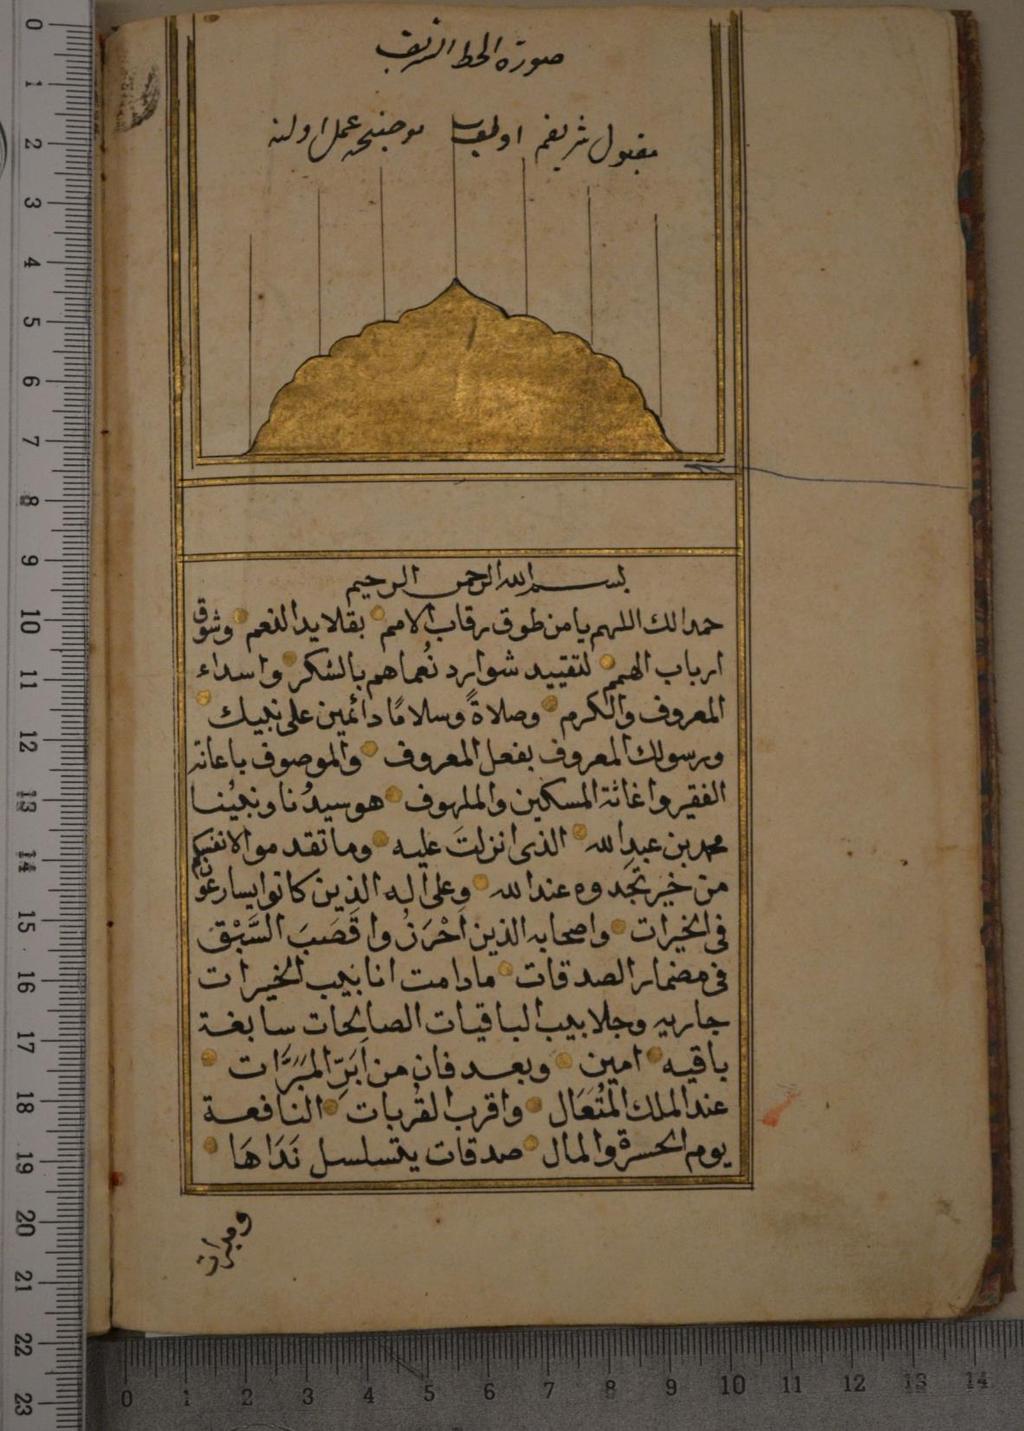 صورة الخط الشريف
مقبول شريفم اولمشدر موجبنجه عمل اولنه
بسم الله الرحمن الرحيم
حمدا لك اللهم يا من طوق رقاب الامم بقلايد النعم وشوق
ارباب الهمم لتقييد شوارد نُعماهم بالشكر واسداء
المعروف والكرم وصلاةً وسلامًا دائمين على نبيك
ورسولك المعروف بفعل المعروف والموصوف باعانة
الفقير واغاثة المسكين والملهوف هو سيدُنا ونبيُنا
محمد بن عبد الله الذى انزلتَ عليه وما تقدموا لانفسكم
من خير تجدوه عند الله وعلى اله الذين كانوا يسارعون
فى الخيرات واصحابه الذين اَحْرَزُوا قَصَبَ السَّبْق
فى مضمار الصدقات مادامت انابيب الخيرات
جاريه وجلابيب الباقيات الصالحات سابغة
باقيه امين وبعد فان من اَبَرِّ المَبَرَّات
عند الملك المُتَعَال واقرب القُربات النافعة
يوم الحسرة والمال صدقات يتسلسل نَدَاهَا
ومبرات
0
1
2
3
4
5
6
7
8
9
10
11
12
13
14
15
16
17
18
19
20
21
22
23
0 1 2 3 4 5 6 7 8 9 10 11 12 13 14